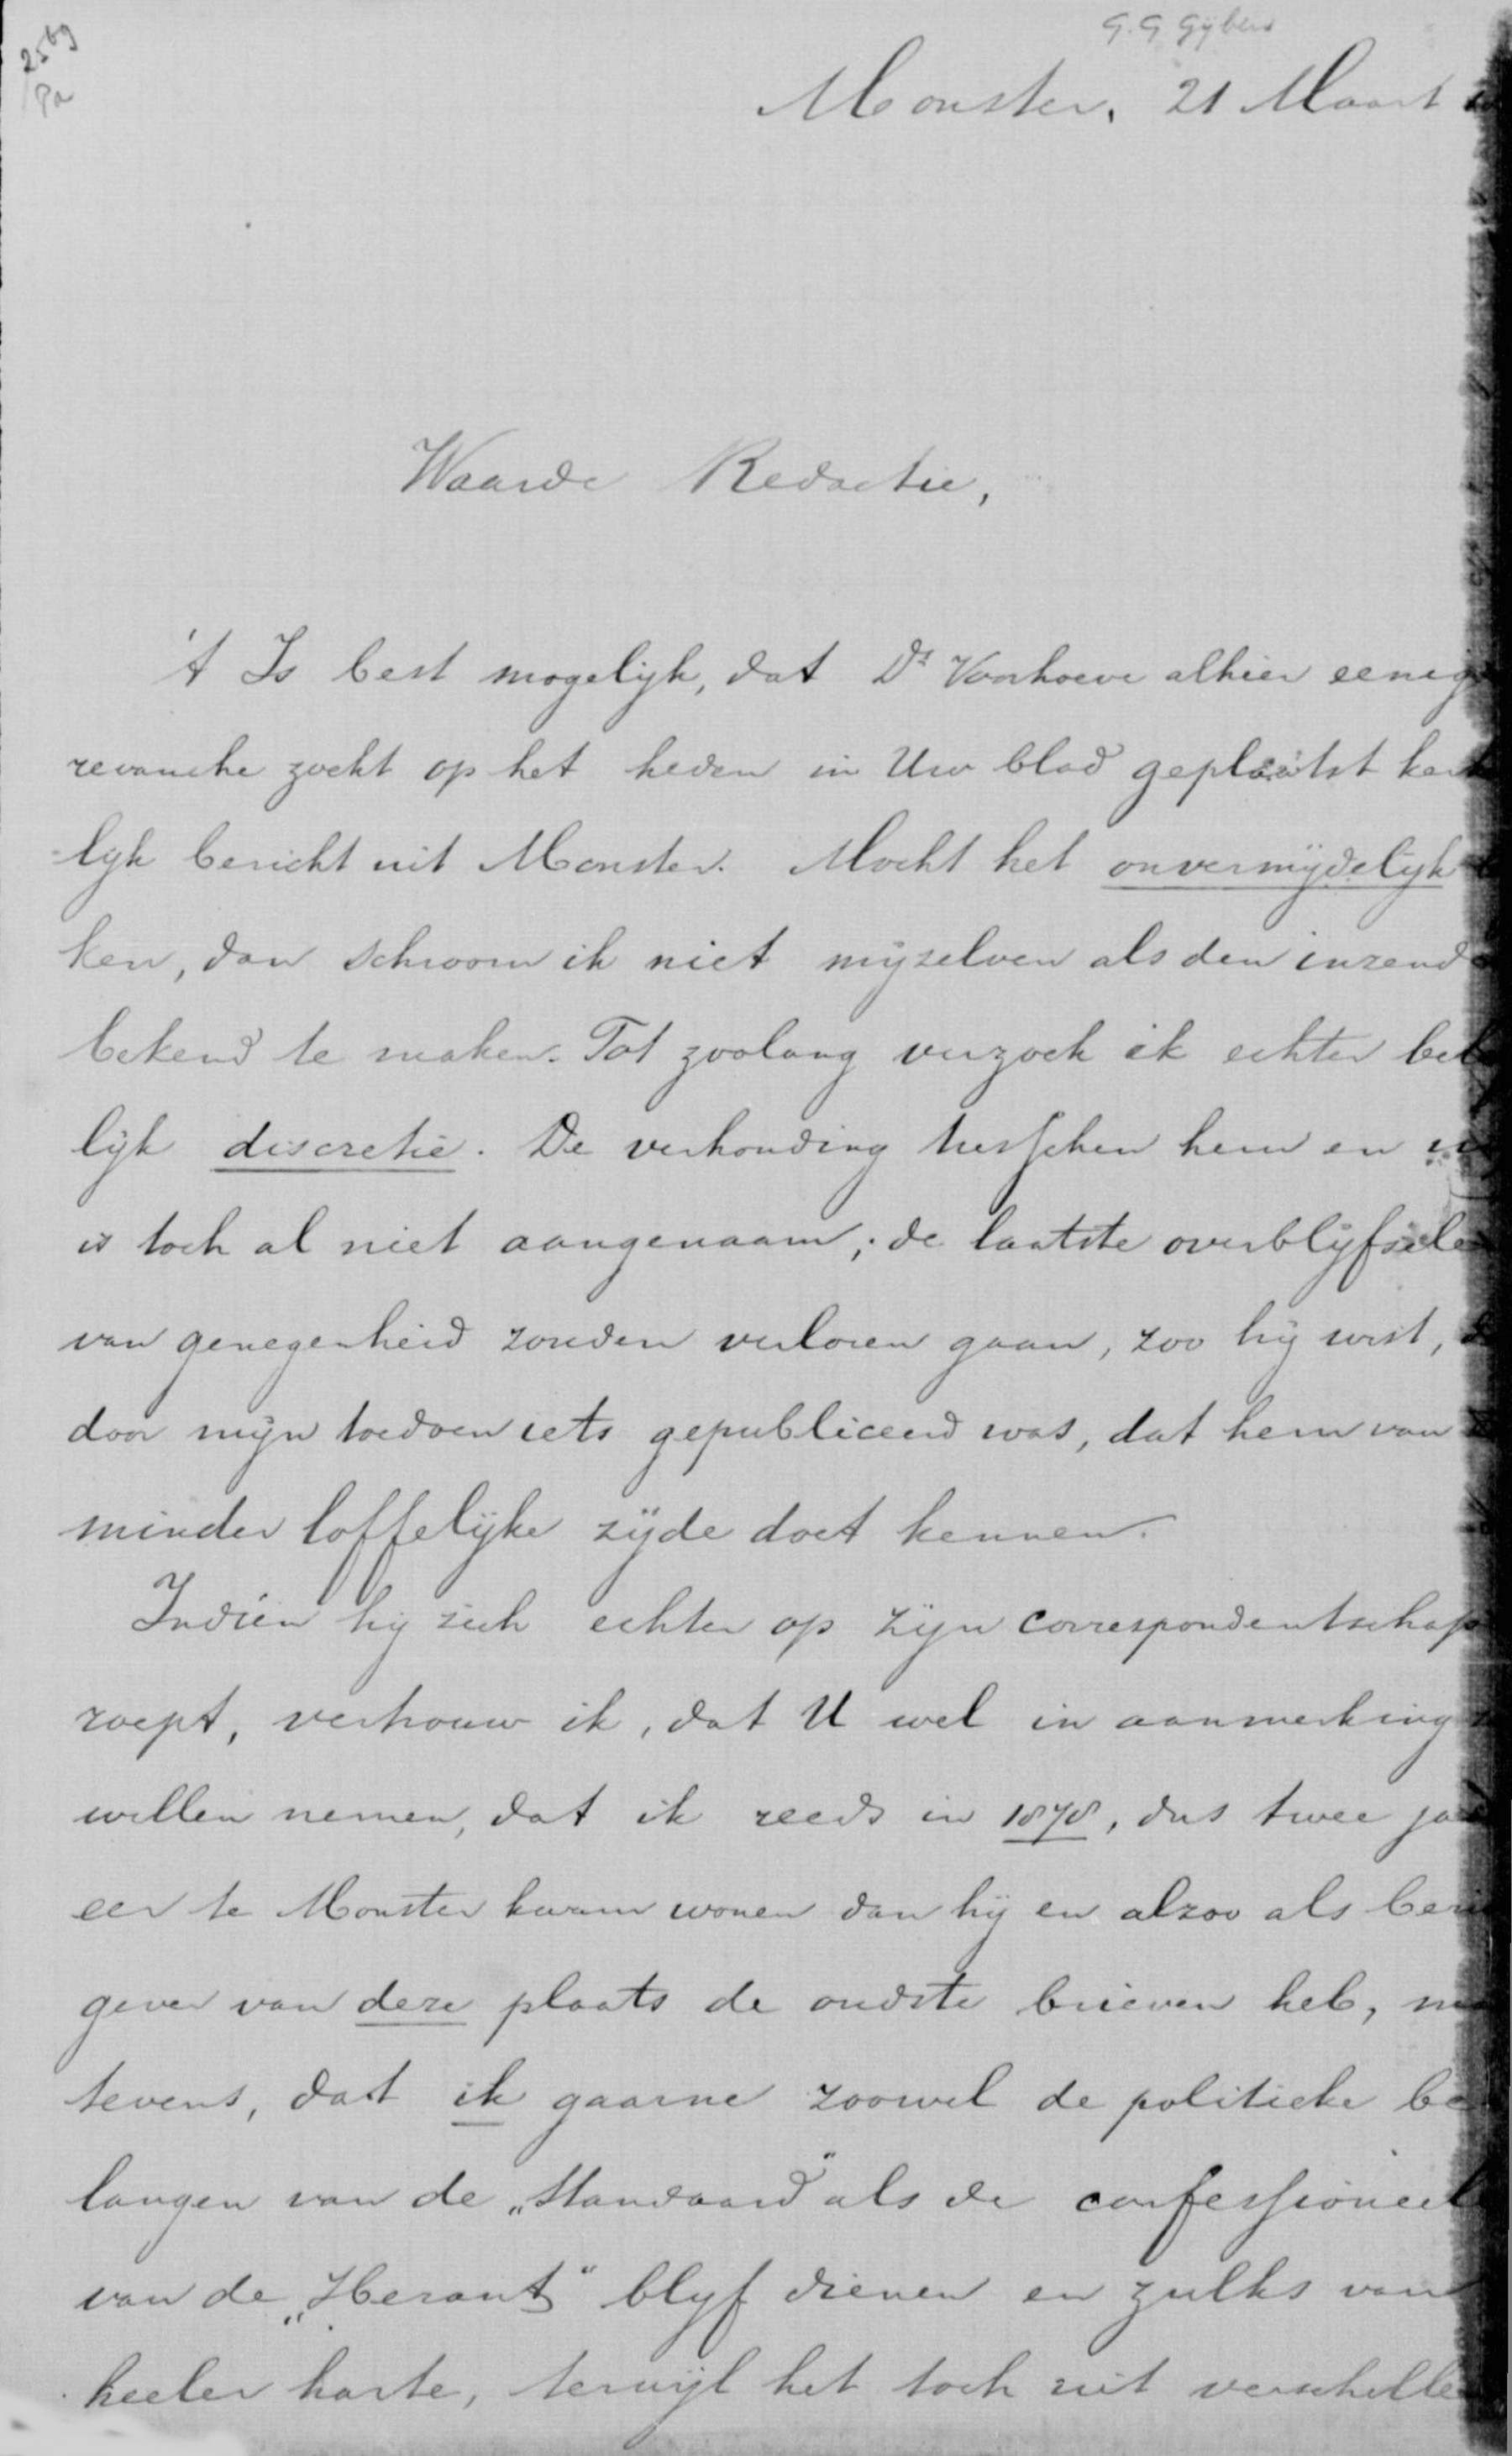 2569
Pa
G. G. Gijbers
Monster, 21 Maart
Waarde Redactie,
't Is best mogelijk, dat Ds Voorhoeve alhier eenig
revanche zoekt op het heden in Uw blad geplaatst kerk
lijk bericht uit Monster. Mocht het onvermijdelijk
ken, dan schroom ik niet mijzelven als den inzend
bekend te maken. Tot zoolang verzoek ik echter bel
lijk discretie. De verhouding tusschen hem en
is toch al niet aangenaam; de laatste overblijfsele
van genegenheid zouden verloren gaan, zoo hij wist,
door mijn toedoen iets gepubliceerd was, dat hem van
minder loffelijke zijde doet kennen.
Indien hij zich echter op zijn correspondentschap
roept, vertrouw ik, dat U wel in aanmerking
willen nemen, dat ik reeds in 1878, dus twee ja
eer te Monster kwam wonen dan hij en alzoo als beri
gever van deze plaats de oudste brieven heb, m
tevens, dat ik gaarne zoowel de politieke be
langen van de „Standaard" als de confessioneel
van de „Heraut" blijf dienen en zulks van
heeler harte, terwijl het toch uit verschille